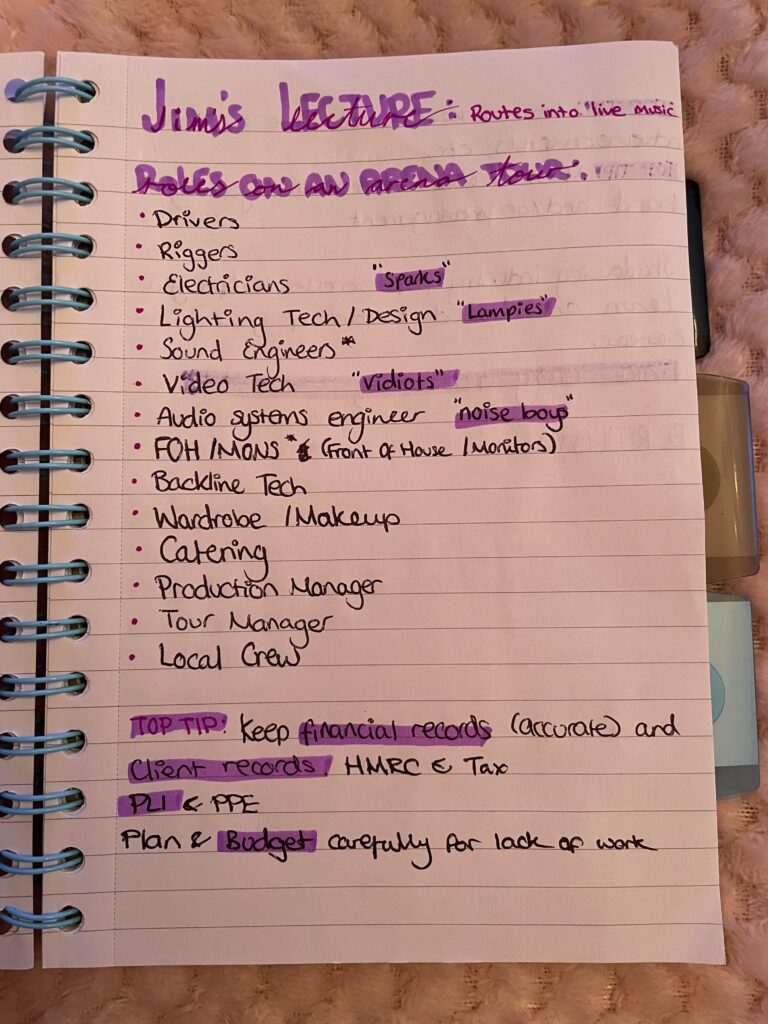 Jim's LECTURE: Routes into "live music
Roles on an arena tour:
• Drivers
• Riggers
• Electricians "Sparks"
• Lighting Tech / Design "Lampies"
• Sound Engineers *
• Video Tech "vidiots"
• Audio systems engineer "noise boys"
• FOH / MONS * (Front Of House / Monitors)
• Backline Tech
• Wardrobe / Makeup
• Catering
• Production Manager
• Tour Manager
• Local Crew
TOP TIP: Keep financial records (accurate) and
Client records. HMRC & Tax
PLI & PPE
Plan & Budget carefully for lack of work